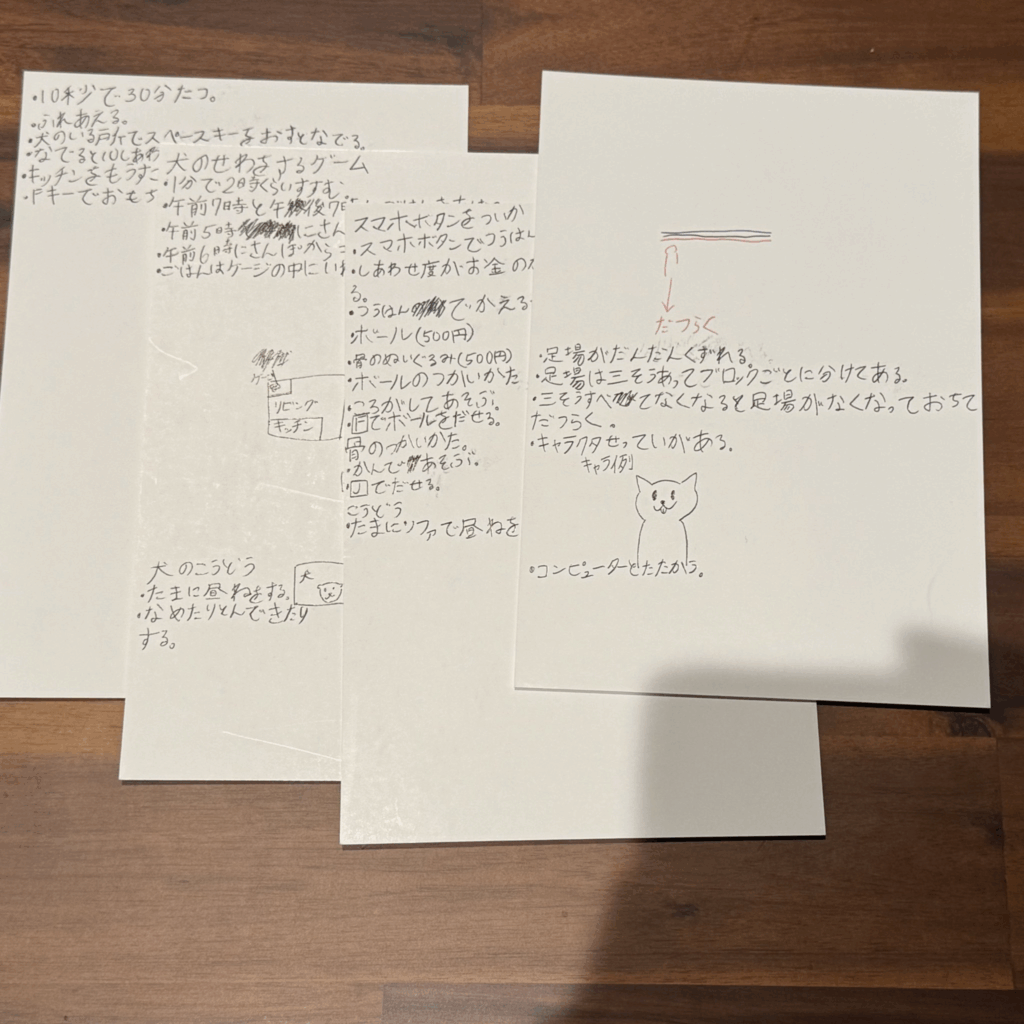 ・10秒で30分たつ。
・ふれあえる。
・犬のいる戸斤でスペースキーをおすとなでる。
・なでると10しあわ
・キッチンをもうすこ
・Fキーでおもち
犬のせわをするゲーム
・1分で2時くらいすすむ
・午前7時と午後7時
・午前5時にさん
・午前6時にさんぽから
・ごはんはケージの中にいれ
ケージ
リビング
キッチン
犬のこうどう
・たまに昼ねをする。
・なめたりとんできたり
する。
犬
スマホボタンをついか
・スマホボタンでつうはん
・しあわせ度がお金の
る。
・つうはんでかえる
・ボール(500円)
・骨のぬいぐるみ(500円)
・ボールのつかいかた
・ころがしてあそぶ。
・Fでボールをだせる。
骨のつかいかた。
・かんであそぶ。
・Jでだせる。
こうどう
・たまにソファで昼ねを
だつらく
・足場がだんだんくずれる。
・足場は三そうあってブロックごとに分けてある。
・三そうすべてなくなると足場がなくなっておちて
だつらく。
・キャラクタせっていがある。
キャラ例
・コンピューターとたたかう。